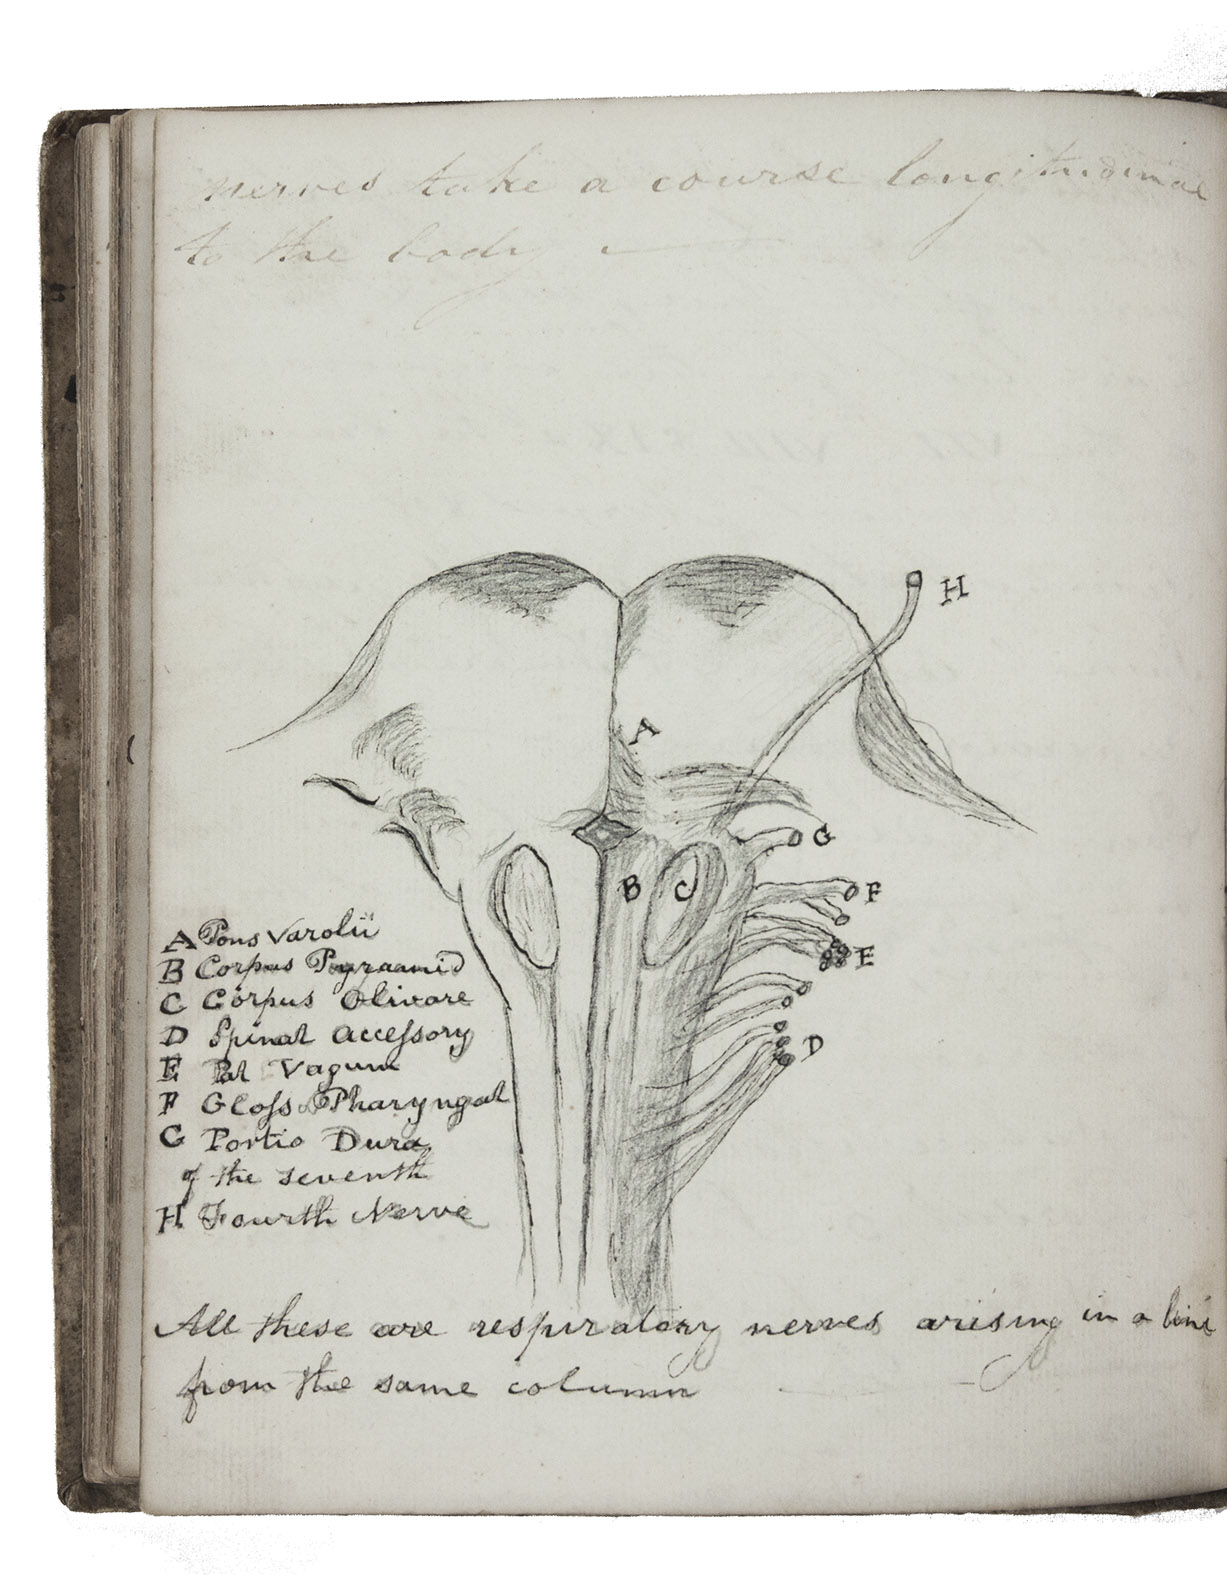 nerves take a course longitudinal
to the body
H
A
G
B C F
E
D
A Pons Varolii
B Corpus Pyraamid
C Corpus Olivare
D Spinal Acceſsory
E Par Vagum
F Gloſso Pharyngal
G Portio Dura
of the seventh
H Fourth Nerve
All these are respiratory nerves arising in a line
from the same column